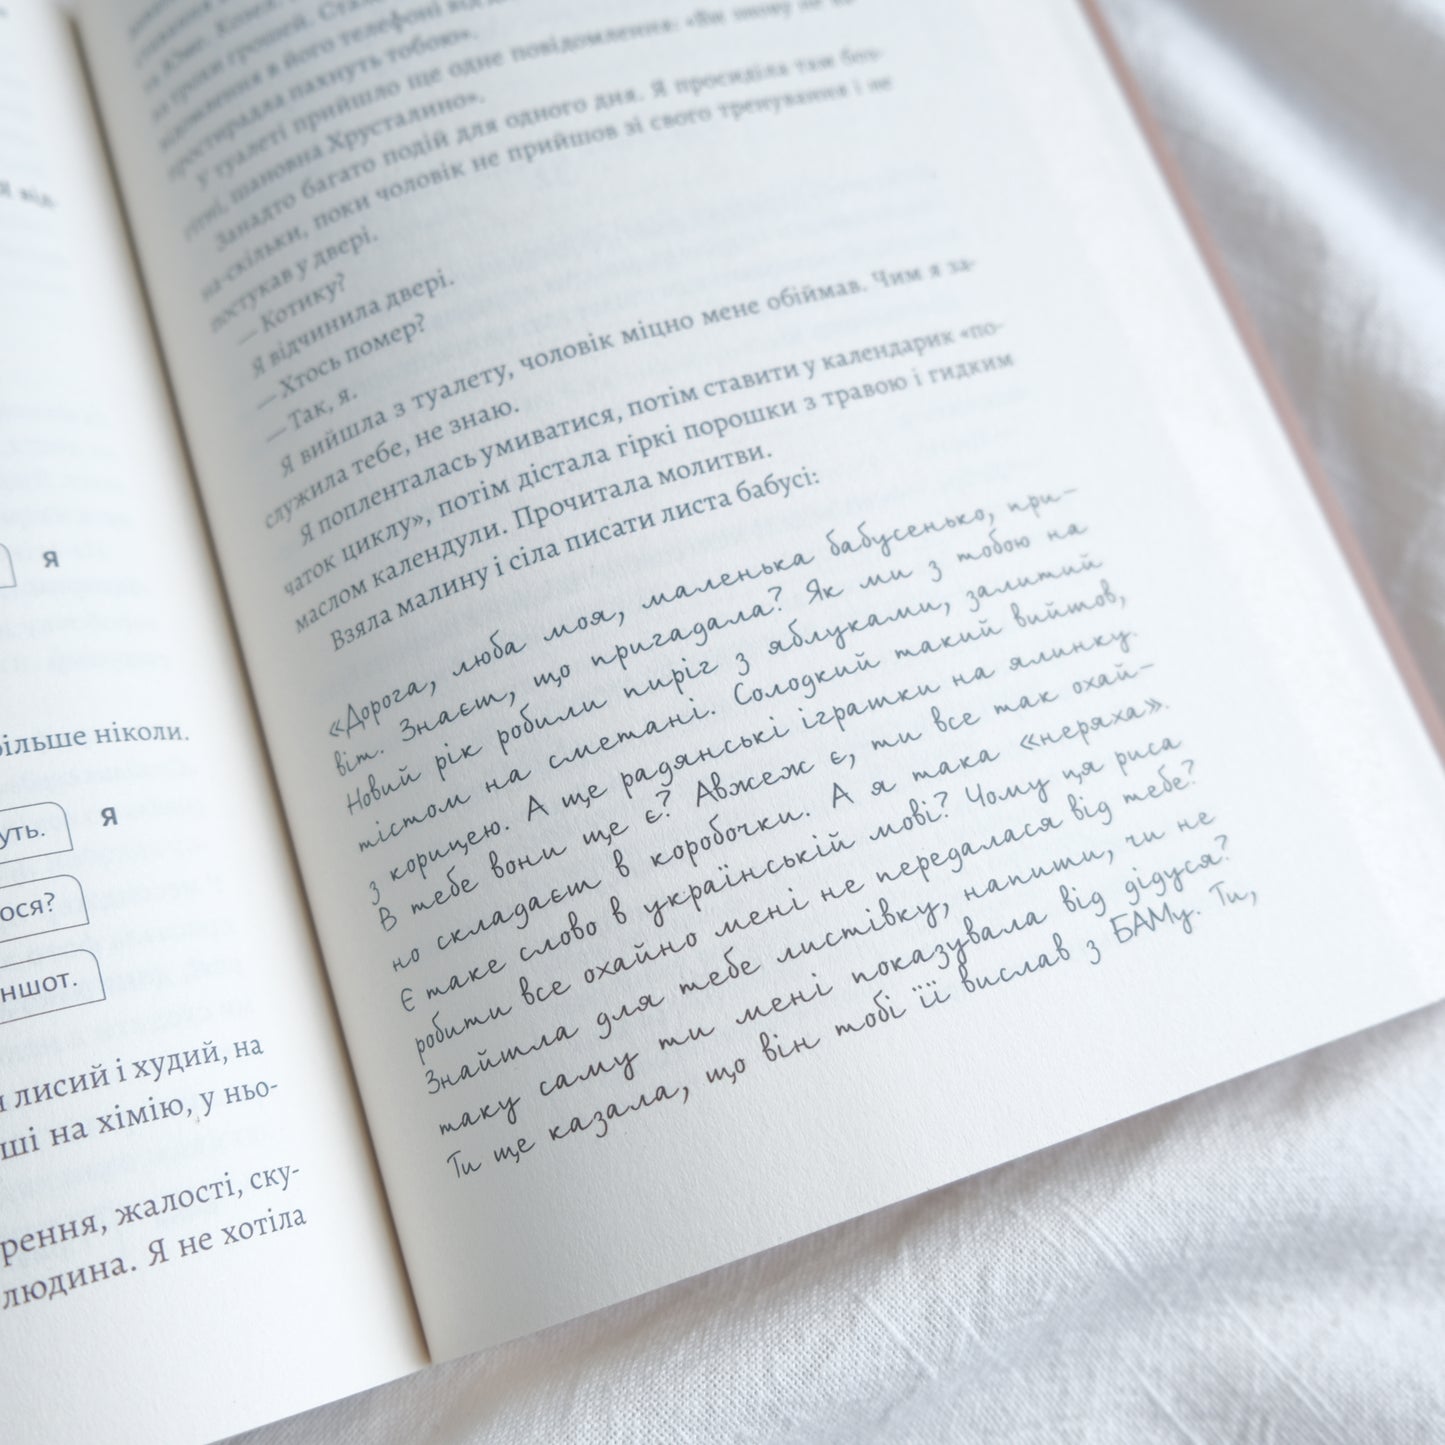 я від-
я
більше ніколи.
уть.
я
ося?
ншот.
лисий і худий, на
ші на хімію, у ньо-
рення, жалості, ску-
людина. Я не хотіла
в його телефоні від
простирадла пахнуть тобою».
У туалеті прийшло ще одне повідомлення: «Ви знову не
шановна Хрусталино».
Занадто багато подій для одного дня. Я просиділа там без-
на-скільки, поки чоловік не прийшов зі свого тренування і не
постукав у двері.
— Котику?
Я відчинила двері.
— Хтось помер?
— Так, я.
Я вийшла з туалету, чоловік міцно мене обіймав. Чим я за-
служила тебе, не знаю.
Я попленталась умиватися, потім ставити у календарик «по-
чаток циклу», потім дістала гіркі порошки з травою і гидким
маслом календули. Прочитала молитви.
Взяла малину і сіла писати листа бабусі:
«Дорога, люба моя, маленька бабусенько, при-
віт. Знаєш, що пригадала? Як ми з тобою на
Новий рік робили пиріг з яблуками, залитий
тістом на сметані. Солодкий такий вийшов,
з корицею. А ще радянські іграшки на ялинку.
В тебе вони ще є? Авжеж є, ти все так охай-
но складаєш в коробочки. А я така «неряха».
Є таке слово в українській мові? Чому ця риса
робити все охайно мені не передалася від тебе?
Знайшла для тебе листівку, напиши, чи не
таку саму ти мені показувала від дідуся?
Ти ще казала, що він тобі її вислав з БАМу. Ти,